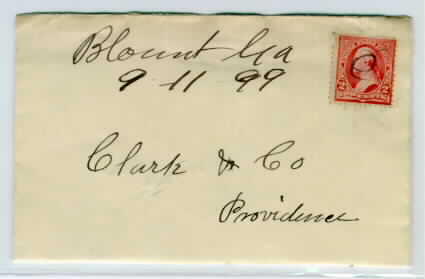 Blount Ga
9 11 99
Clark & Co
Providence